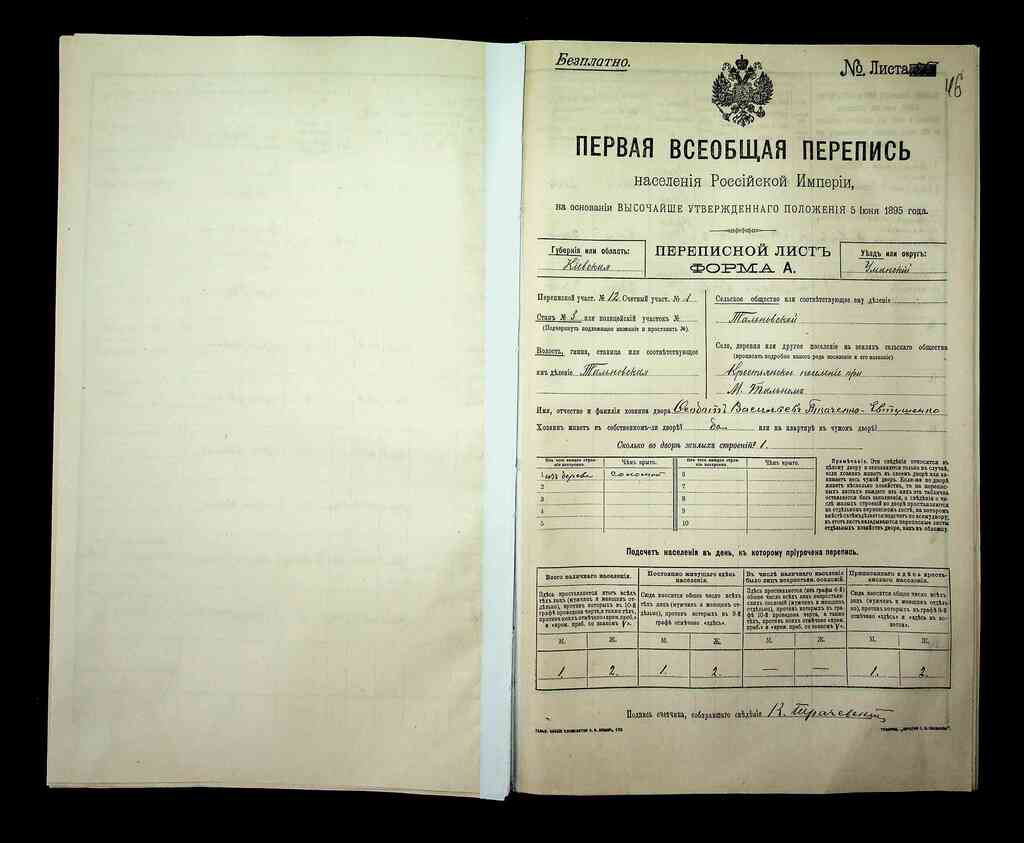 Безплатно.
№ Листа
46
ПЕРВАЯ ВСЕОБЩАЯ ПЕРЕПИСЬ
населенія Россійской Имперіи,
на основаніи ВЫСОЧАЙШЕ УТВЕРЖДЕННАГО ПОЛОЖЕНІЯ 5 Іюня 1895 года.
Губернія или область:
Кіевская
ПЕРЕПИСНОЙ ЛИСТЪ
ФОРМА А.
Уѣздъ или округъ:
Уманскій
Переписной участ. № 12. Счетный участ. № 1
Станъ № 3 или полицейскій участокъ №
(Подчеркнуть подлежащее названіе и проставить №).
Волость, гмина, станица или соотвѣтствующее
имъ дѣленіе Тальновская
Сельское общество или соотвѣтствующее ему дѣленіе
Тальновской
Село, деревня или другое поселеніе на земляхъ сельскаго общества
(прописать подробно какого рода поселеніе и его названіе)
Крестьянское поселеніе при
М. Тальномъ
Имя, отчество и фамилія хозяина двора Феодотъ Васильевъ Ткаченко-Евтушенко
Хозяинъ живетъ въ собственномъ-ли дворѣ? да или на квартирѣ въ чужомъ дворѣ?
Сколько во дворѣ жилыхъ строеній? 1.
Изъ чего каждое строеніе построено. Чѣмъ крыто. Изъ чего каждое строеніе построено. Чѣмъ крыто.
1 изъ дерева соломой 6
2 7
3 8
4 9
5 10
Примѣчаніе. Эти свѣдѣнія относятся къ
цѣлому двору и заполняются только въ случаѣ,
если хозяинъ живетъ въ своемъ дворѣ или занимаетъ весь чужой дворъ. Если-же во дворѣ
живетъ нѣсколько хозяйствъ, то на переписныхъ листахъ каждаго изъ нихъ эта табличка
остается безъ заполненія, а свѣдѣнія о числѣ жилыхъ строеній во дворѣ проставляются
на отдѣльномъ переписномъ листѣ, на которомъ
Подсчетъ населенія въ день, къ которому пріурочена перепись.
Всего наличнаго населенія. Постоянно живущаго здѣсь населенія. Въ числѣ наличнаго населенія было лицъ некрестьян. сословій. Приписаннаго здѣсь крестьянскаго населенія.
Здѣсь проставляется итогъ всѣхъ
тѣхъ лицъ (мужчинъ и женщинъ отдѣльно), противъ которыхъ въ 10-й
графѣ проведена черта, а также тѣхъ,
противъ коихъ отмѣчено «врем. преб.»
и «врем. преб. со знакомъ V».
Сюда вносится общее число всѣхъ
тѣхъ лицъ (мужчинъ и женщинъ
отдѣльно), противъ которыхъ въ 9-й
графѣ отмѣчено «здѣсь».
Здѣсь проставляется (изъ графы 4-й)
общее число всѣхъ лицъ некрестьянскихъ сословій (мужчинъ и женщинъ
отдѣльно), противъ которыхъ въ графѣ 10-й проведена черта, а также
тѣхъ, противъ коихъ отмѣчено «врем.
преб.» и «врем. преб. со знакомъ V».
Сюда вносится общее число всѣхъ
лицъ (мужчинъ и женщинъ отдѣльно), противъ которыхъ въ графѣ 8-й
отмѣчено «здѣсь» и «здѣсь въ волости».
М. Ж. М. Ж. М. Ж. М. Ж.
1. 2. 1. 2. — — 1. 2.
Подпись счетчика, собиравшаго свѣдѣнія К. Трачевскій